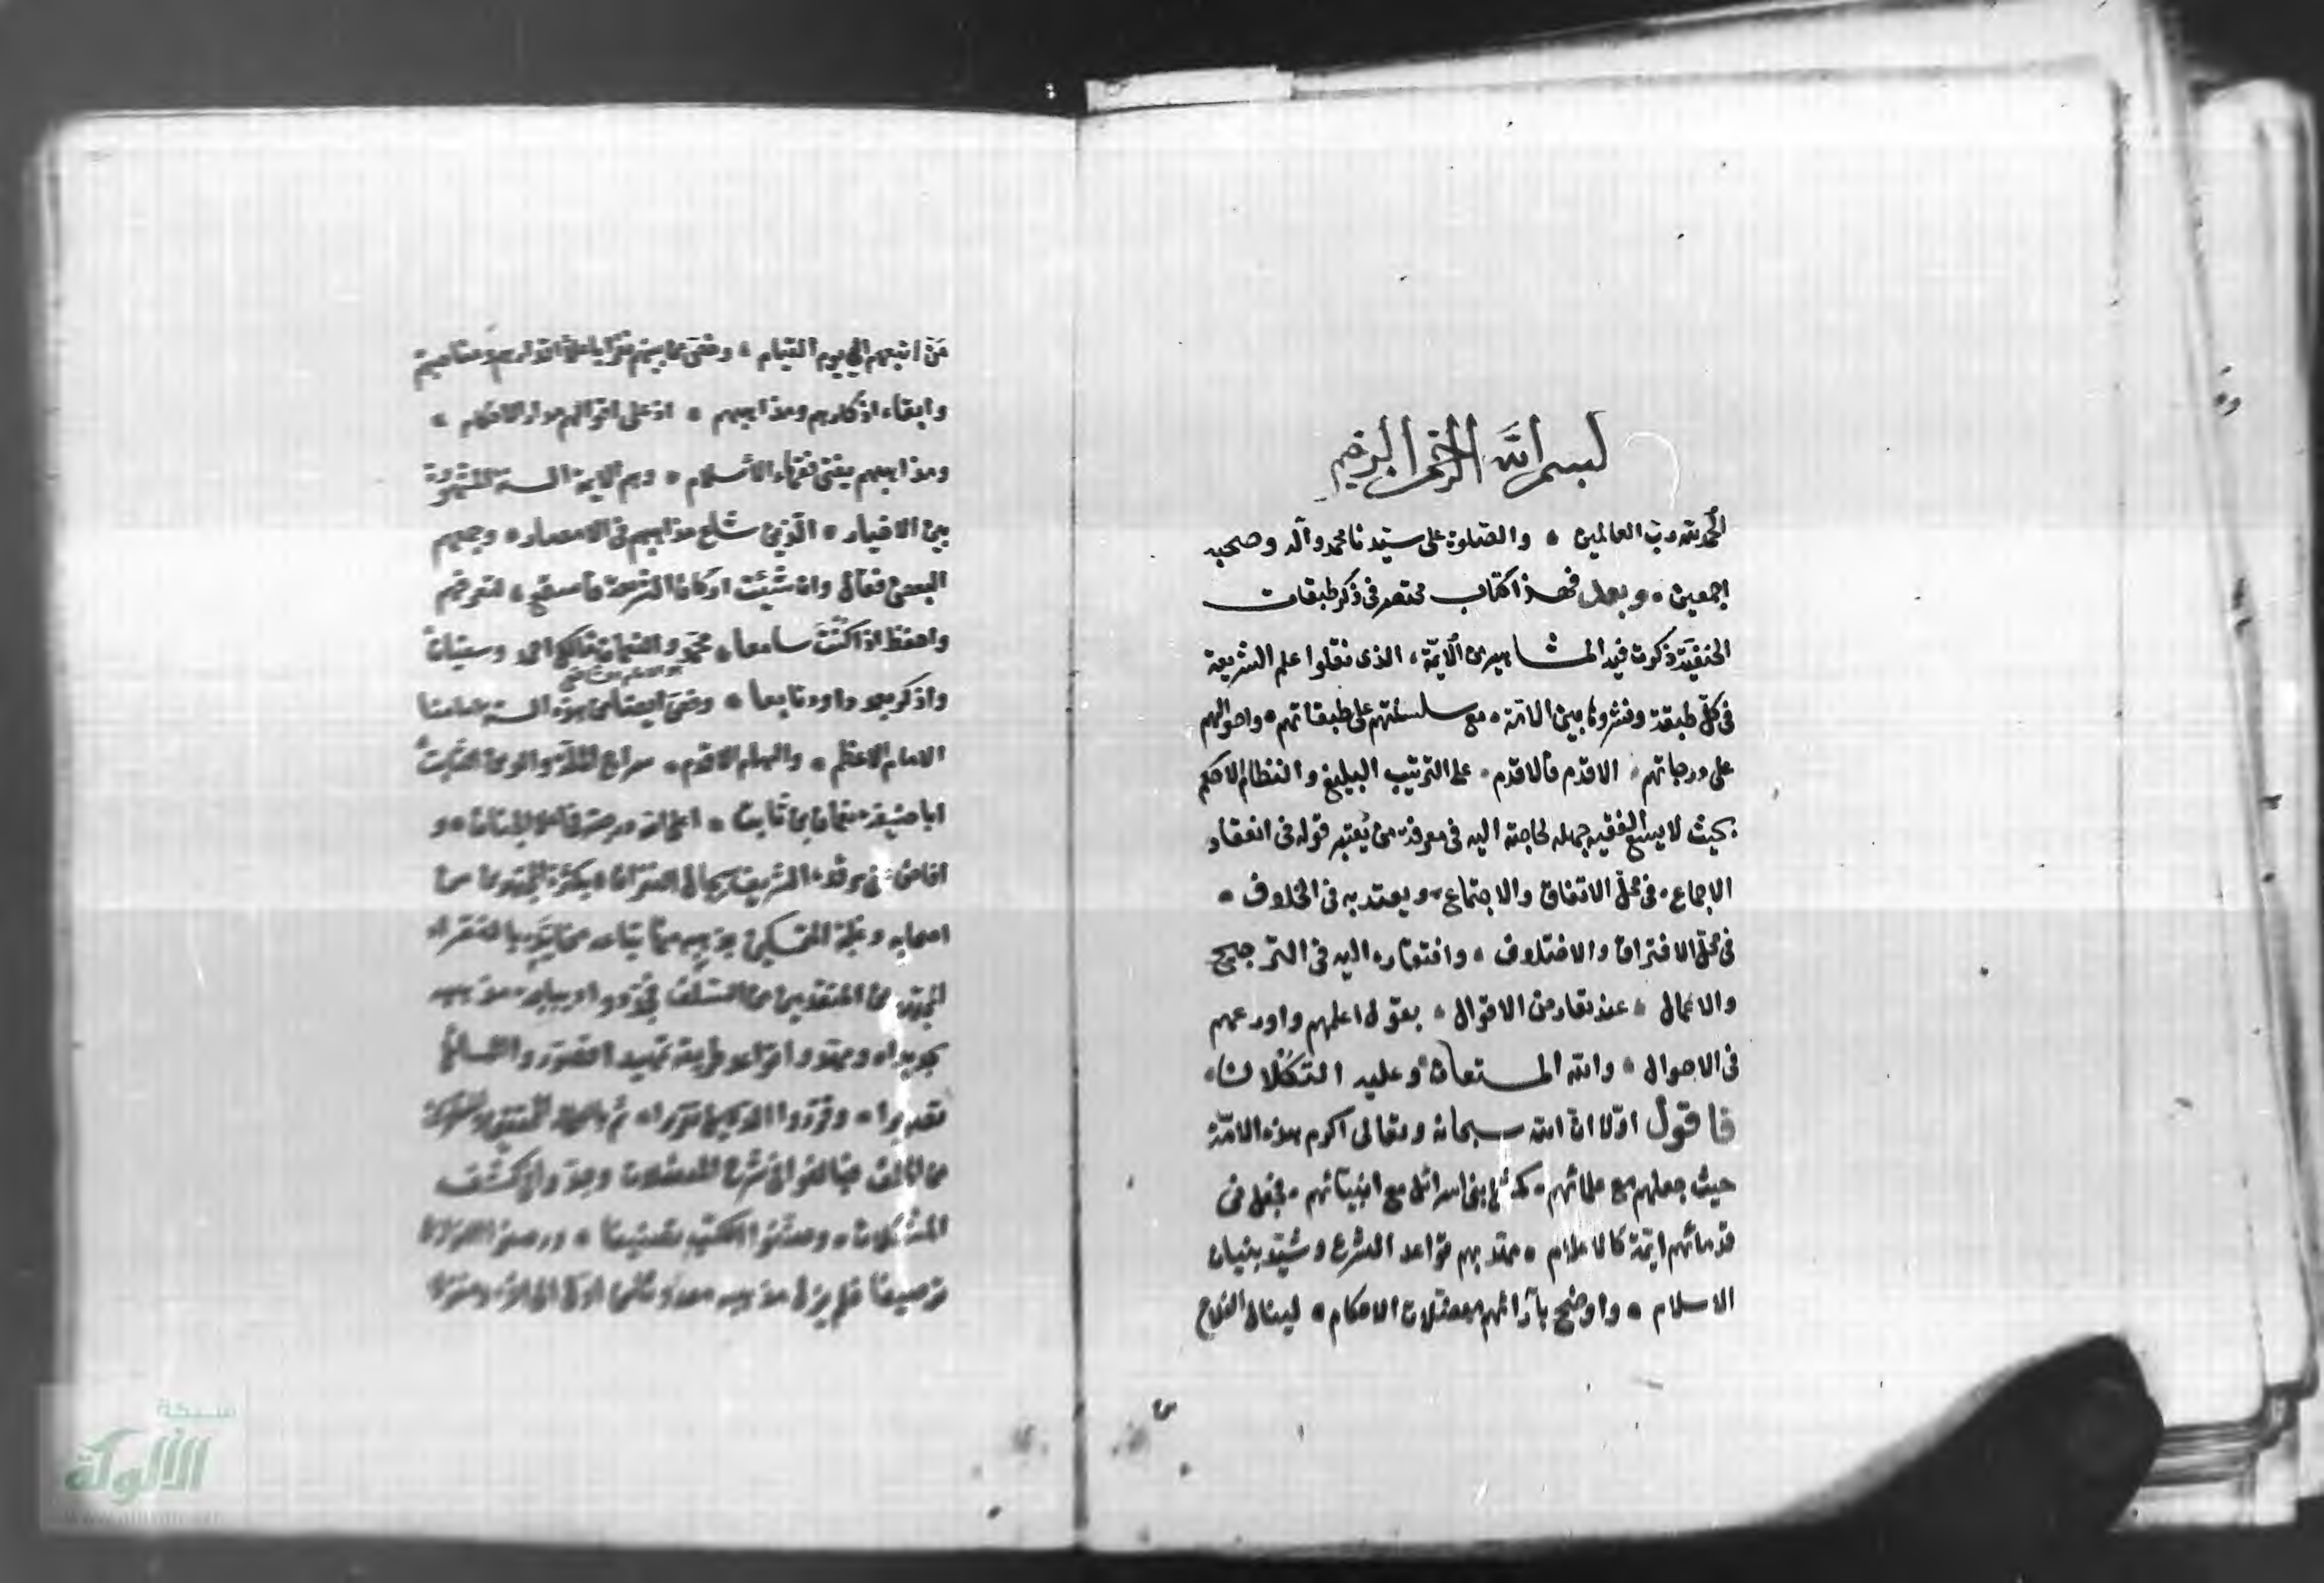 بسم الله الرحمن الرحيم
الحمد لله رب العالمين والصلوة على سيدنا محمد وآله وصحبه
اجمعين وبعد فهذا كتاب مختصر في ذكر طبقات
الحنفية ذكرت فيه المشاهير من الائمة الذي نقلوا علم الشريعة
في كل طبقة ونشروها بين الامة مع سلسلتهم على طبقاتهم واحوالهم
على درجاتهم الاقدم فالاقدم على الترتيب البليغ والنظام الاحكم
بحيث لا يسع الفقيه جهله لحاجته اليه في معرفة من يعتبر قوله في انعقاد
الاجماع في محل الاتفاق والاجتماع ويعتد به في الخلاف
في محل الافتراق والاختلاف وافتقاره اليه في الترجيح
والاعمال عند تعارض الاقوال بقول اعلمهم واورعهم
في الاحوال والله المستعان وعليه التكلان
فاقول اولا ان الله سبحانه وتعالى اكرم هذه الامة
حيث جعلهم مع علمائهم كمثل بني اسرائل مع انبيائهم فجعل في
قدمائهم ائمة كالاعلام مهد بهم قواعد الشرع وشيد بنيان
الاسلام واوضح بآرائهم معضلات الاحكام لينال الفلاح
من اتبعهم الى يوم القيام وخص من بينهم
وابقاء اذكارهم ومذاهبهم اذ على اقوالهم مدار الاحكام
ومذاهبهم يفتي فقهاء الاسلام وهم الائمة الستة المشهورة
بين الاخيار الذين شاع مذاهبهم في الامصار وجمعهم
البعض فقال وان شئت اركان الشريعة فاستمع لتعرفهم
واحفظ اذا كنت سامعا محمد والنعمان مالك احمد وسفيان
واذكر بعد داود تابعا وخص ايضا من هذه الستة امامنا
الامام الاعظم والهمام الاقدم سراج الملة والدين الثابت
ابا حنيفة نعمان بن ثابت اعلى الله درجته في اعلا الجنان و
افاض على مرقده الشريف بكثرة المجتهدين من
اصحابه وغلبة المتمسكين بمذهبه
من المتقدمين من السلف
قواعد طريقه تمهيدا
تقريرا وقرروا
من الخلف فبالغوا في شرح المعضلات وجدوا في كشف
المشكلات وصنفوا الكتب تصنيفا ورصفوا
ترصيفا فلم يزل مذهبه